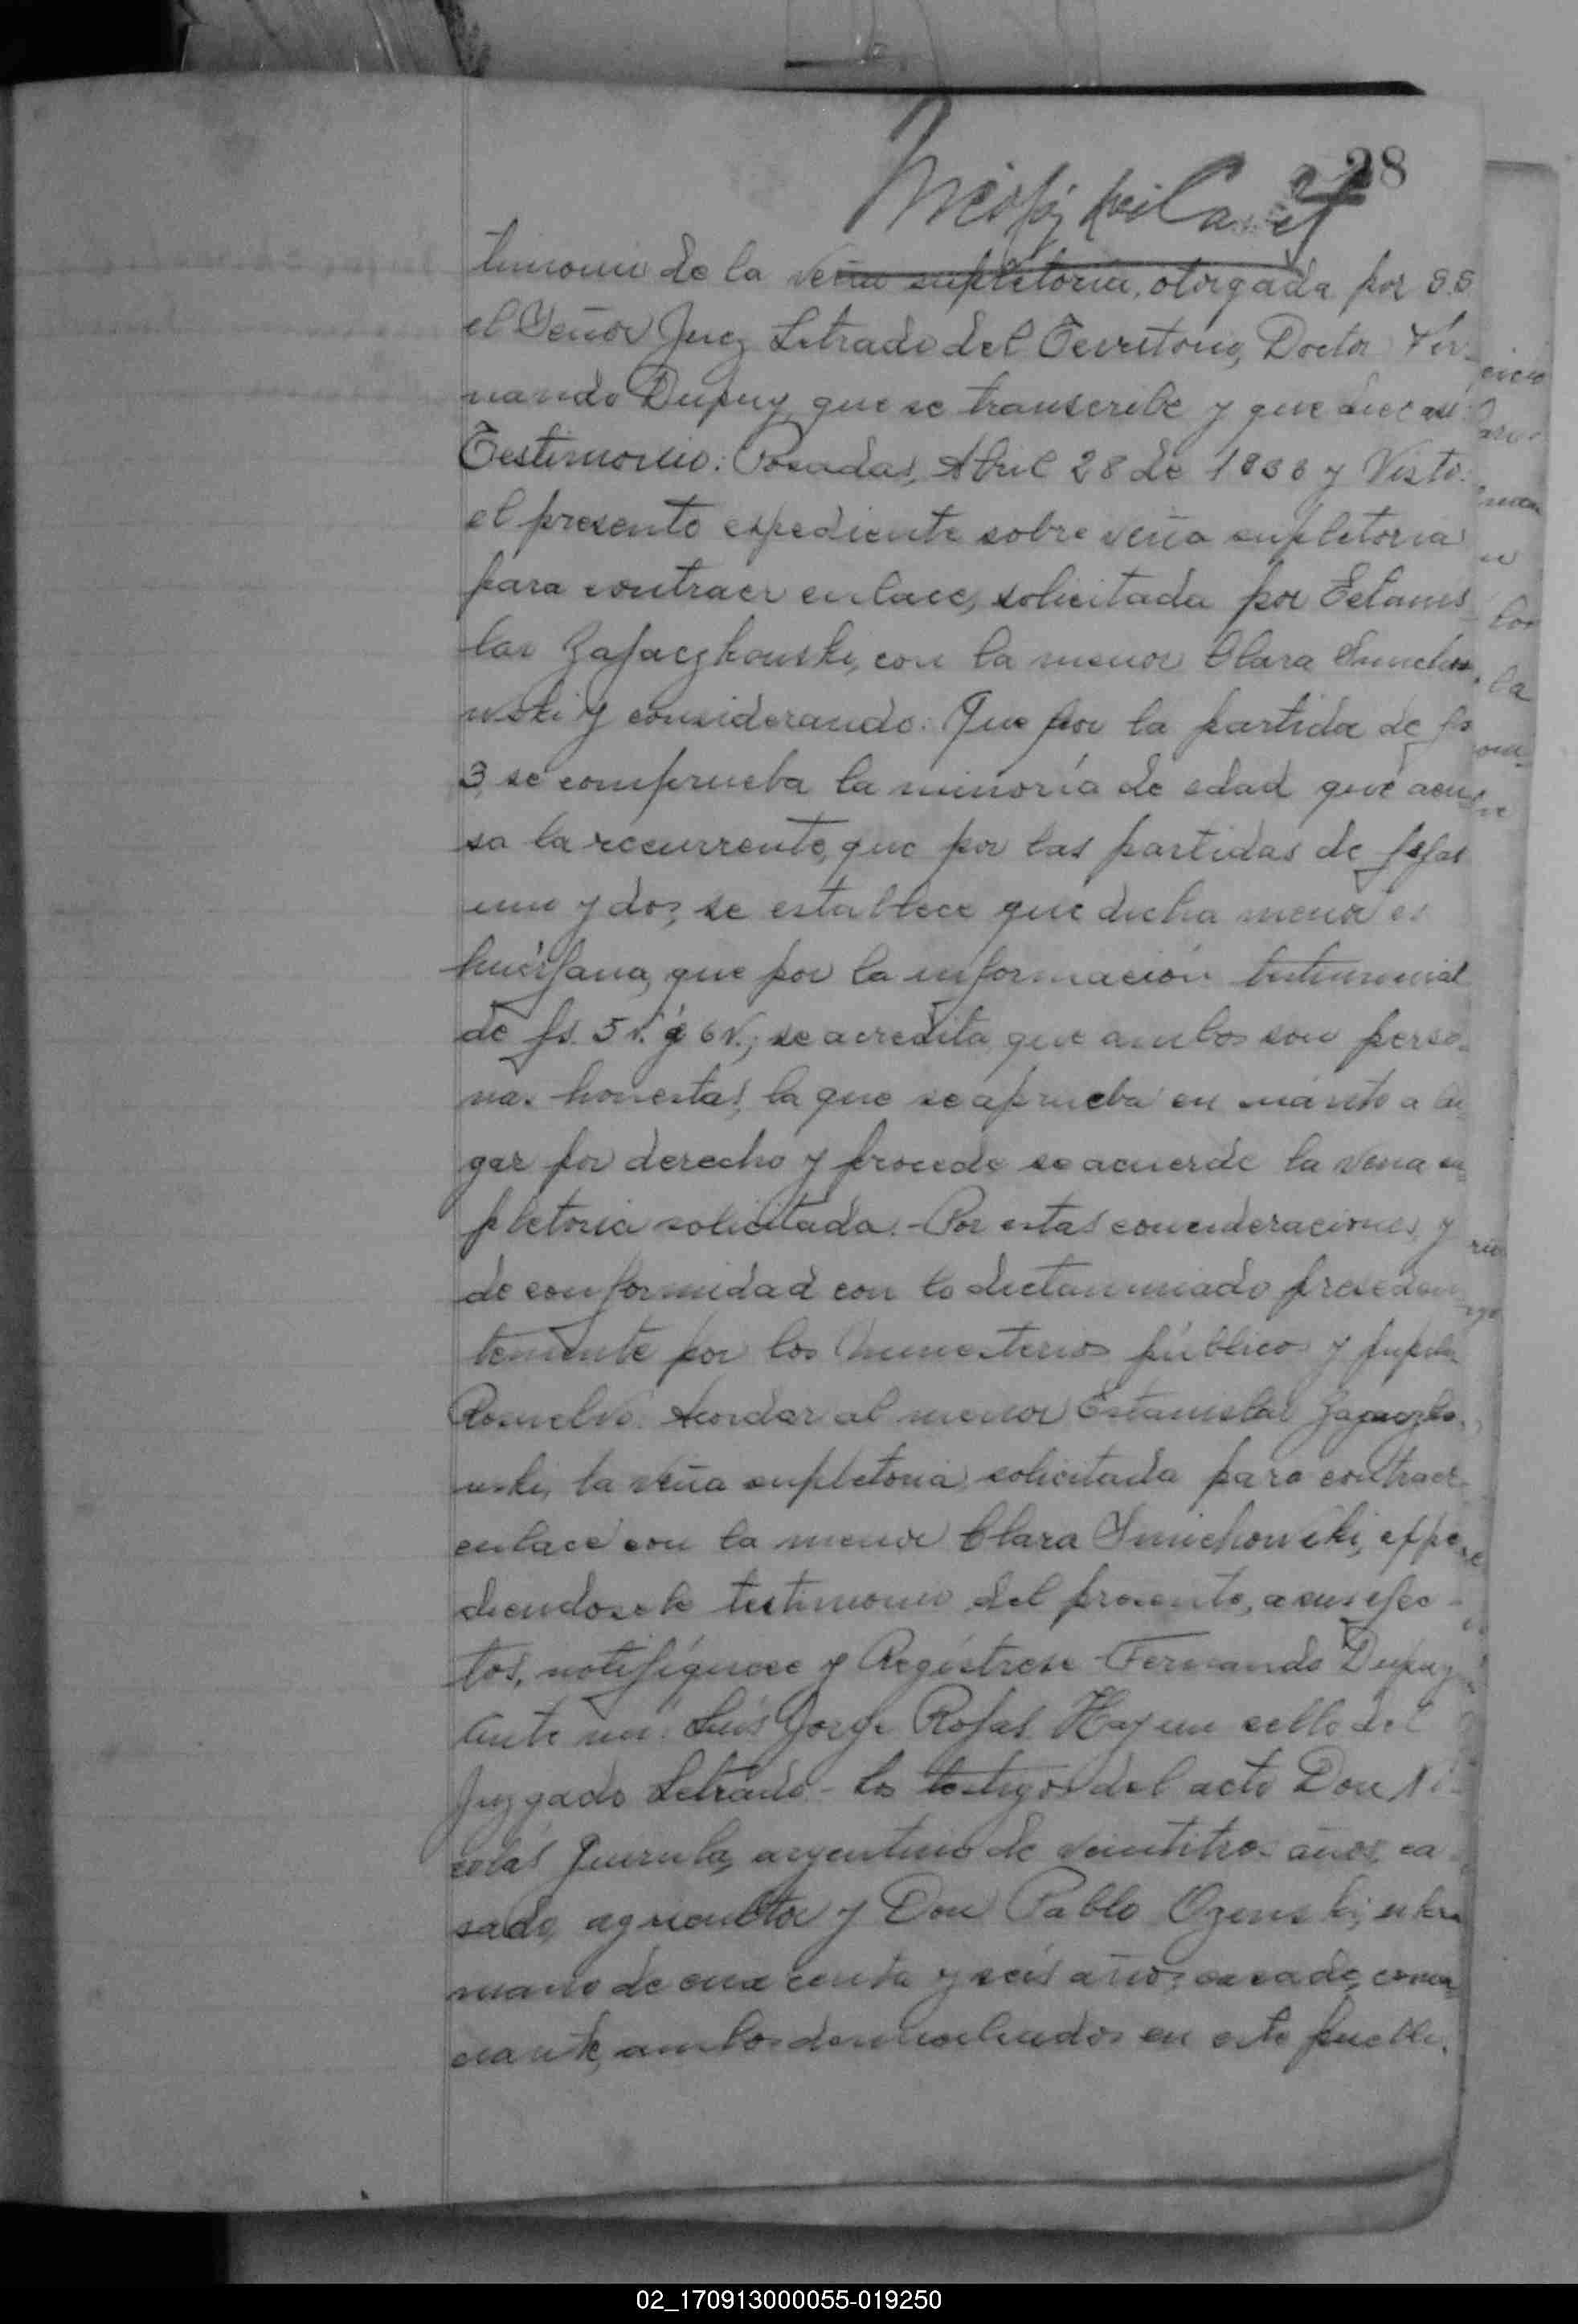 28
timonio de la venia supletoria, otorgada por S.S.
el Señor Juez Letrado del Territorio, Doctor Fer-
nando Dupuy, que se transcribe y que dice así:
Testimonio: Posadas, Abril 28 de 1938 y Visto:
el presente espediente sobre venia supletoria
para contraer enlace, solicitada por Estanis-
lao Zajaczkouski, con la menor Clara Smicho-
wski y considerando: Que por la partida de fs
3, se comprueba la minoría de edad que acu-
sa la recurrente, que por las partidas de fojas
uno y dos, se establece que dicha menor es
huérfana, que por la información testimonial
de fs. 5 v. á 6 v.; se acredita que ambos son perso-
nas honestas, la que se aprueba en cuanto a lu-
gar por derecho y procede se acuerde la venia su-
pletoria solicitada.- Por estas concideraciones, y
de conformidad con lo dictaminado preceden-
temente por los Ministerios público y pupilar
Resuelvo: Acordar al menor Estanislao Zajaczko-
uski, la venia supletoria solicitada para contraer
enlace con la menor Clara Smichowski, expe-
diendosele testimonio del presente, a sus efec-
tos, notifíquese y Regístrese - Fernando Dupuy
Ante mí: Luís Jorge Rojas. Hay un sello del
Juzgado Letrado - Los testigos del acto Don Ni-
colás, argentino de veintitres años, ca-
sado, agricultor y Don Pablo Ozenski, ukra-
niano de cuarenta y seis años, casado, comer-
ciante, ambos domiciliados en este pueblo.
02_170913000055-019250